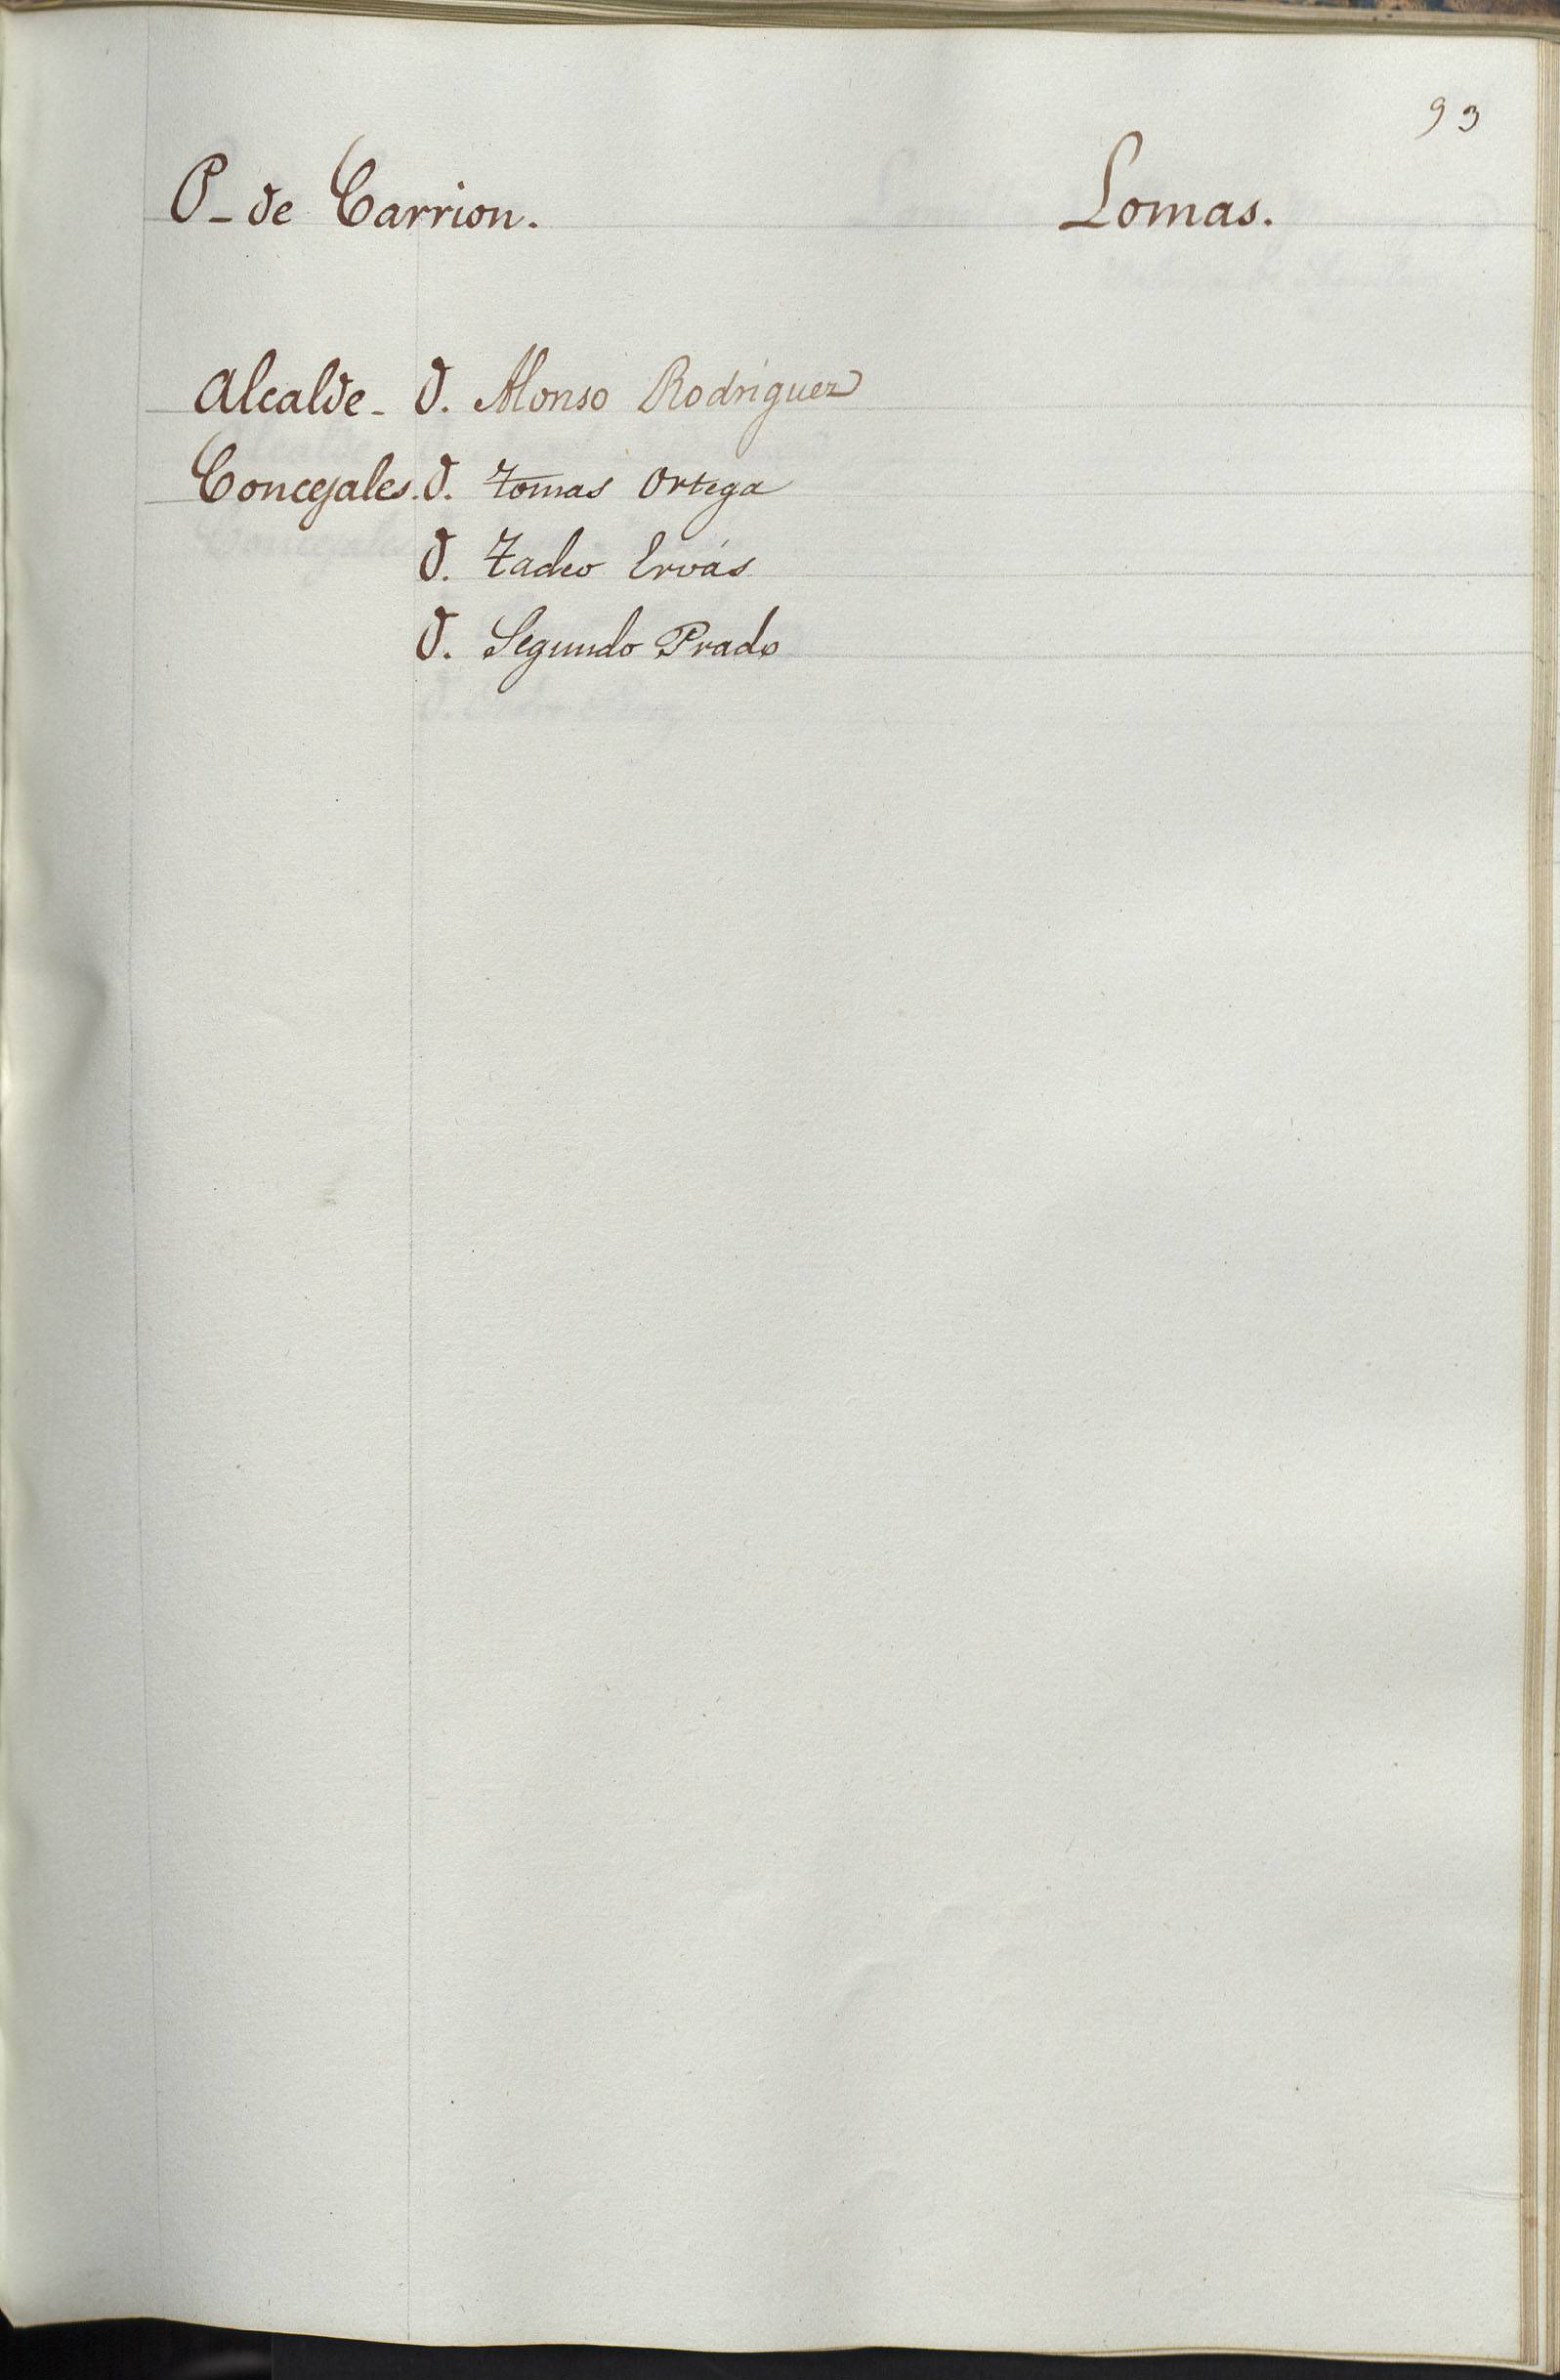 93
P_ de Carrion. Lomas.
Alcalde_ D. Alonso Rodriguez
Concejales. D. Tomas Ortega
D. Tadeo Ervás
D. Segundo Prado